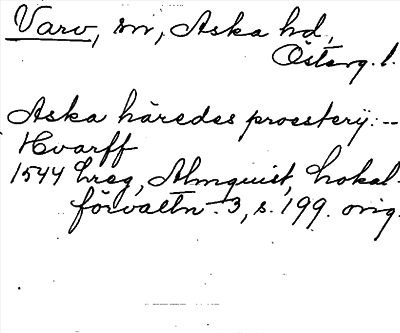 Varv, sn, Aska hd,
Österg. l.
Aska häredes proesterÿ: --
Hvarff
1544 Lreg, Almquist, Lokal-
förvaltn. 3, s. 199. orig.